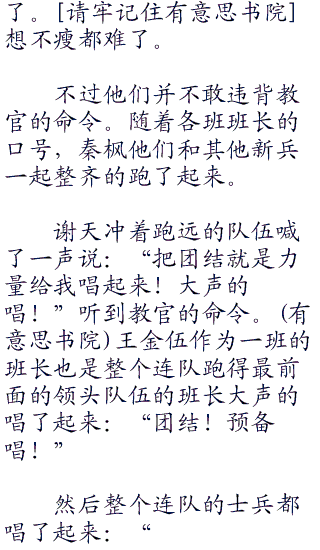 了。[请牢记住有意思书院]
想不瘦都难了。
不过他们并不敢违背教
官的命令。随着各班班长的
口号，秦枫他们和其他新兵
一起整齐的跑了起来。
谢天冲着跑远的队伍喊
了一声说：“把团结就是力
量给我唱起来！大声的
唱！”听到教官的命令。(有
意思书院)王金伍作为一班的
班长也是整个连队跑得最前
面的领头队伍的班长大声的
唱了起来：“团结！预备
唱！”
然后整个连队的士兵都
唱了起来：“